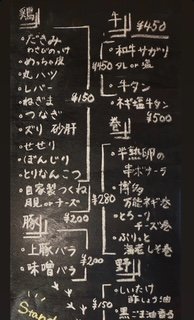 鶏
・だきみ
わさびのっけ
・めっちゃ皮
・丸ハツ
・レバー
・ねぎま
・つなぎ
・ズリ 砂肝
・せせり
・ぼんじり
・とりなんこつ
・自家製つくね
月見 or チーズ
¥150
¥200
豚
・上豚バラ
・味噌バラ
¥200
牛
¥450
・和牛サガリ
¥450 タレ or 塩
・牛タン
・ネギ塩牛タン
¥500
巻
・半熟卵の
串ボナーラ
・博多
万能ネギ巻
・とろーり
チーズ巻
・ぷりっと
海老しそ巻
¥280
野
・しいたけ
酢しょう油
・黒ごま油香る
¥150
Stand